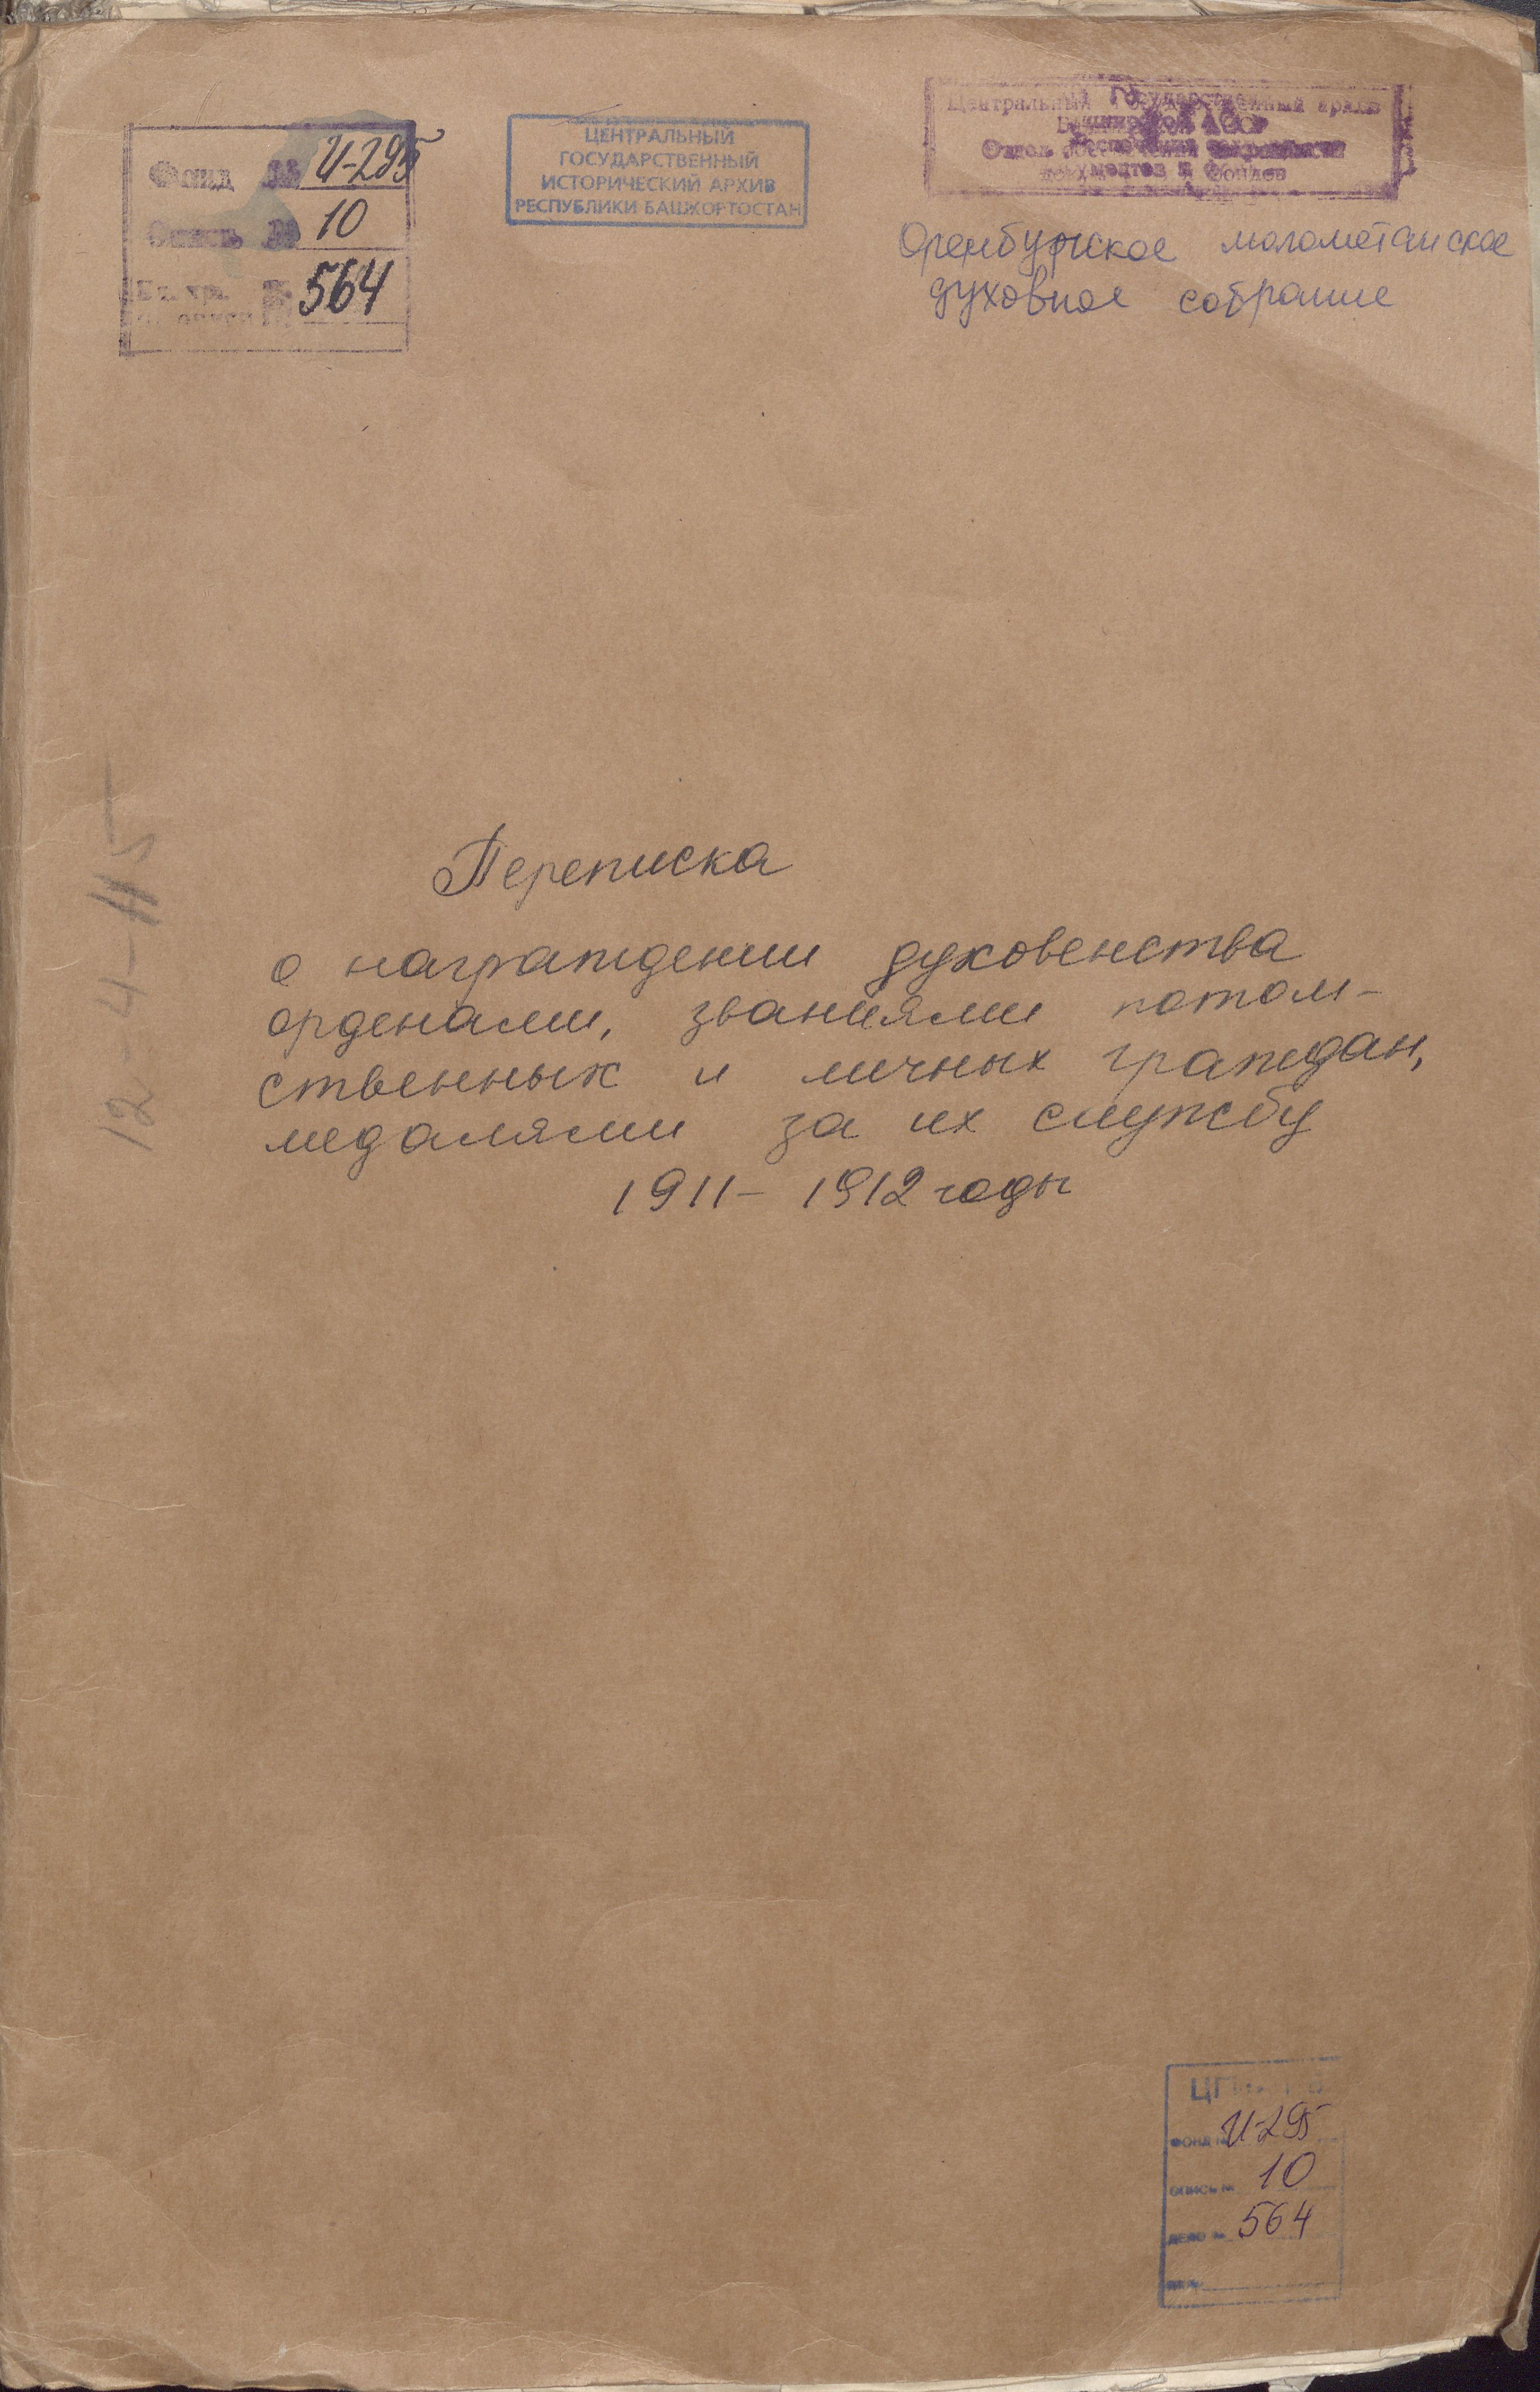 Фонд № И-295
Опись № 10
Ед. хр. № 564
ЦЕНТРАЛЬНЫЙ
ГОСУДАРСТВЕННЫЙ
ИСТОРИЧЕСКИЙ АРХИВ
РЕСПУБЛИКИ БАШКОРТОСТАН
Центральный Государственный архив
Отдел
документов и фондов
Оренбургское магометанское
духовное собрание
12-4-115
Переписка
о награждении духовенства
орденами, званиями потом-
ственных и личных граждан,
медалями за их службу
1911- 1912 годы
ФОНД № И-295
ОПИСЬ № 10
ДЕЛО № 564